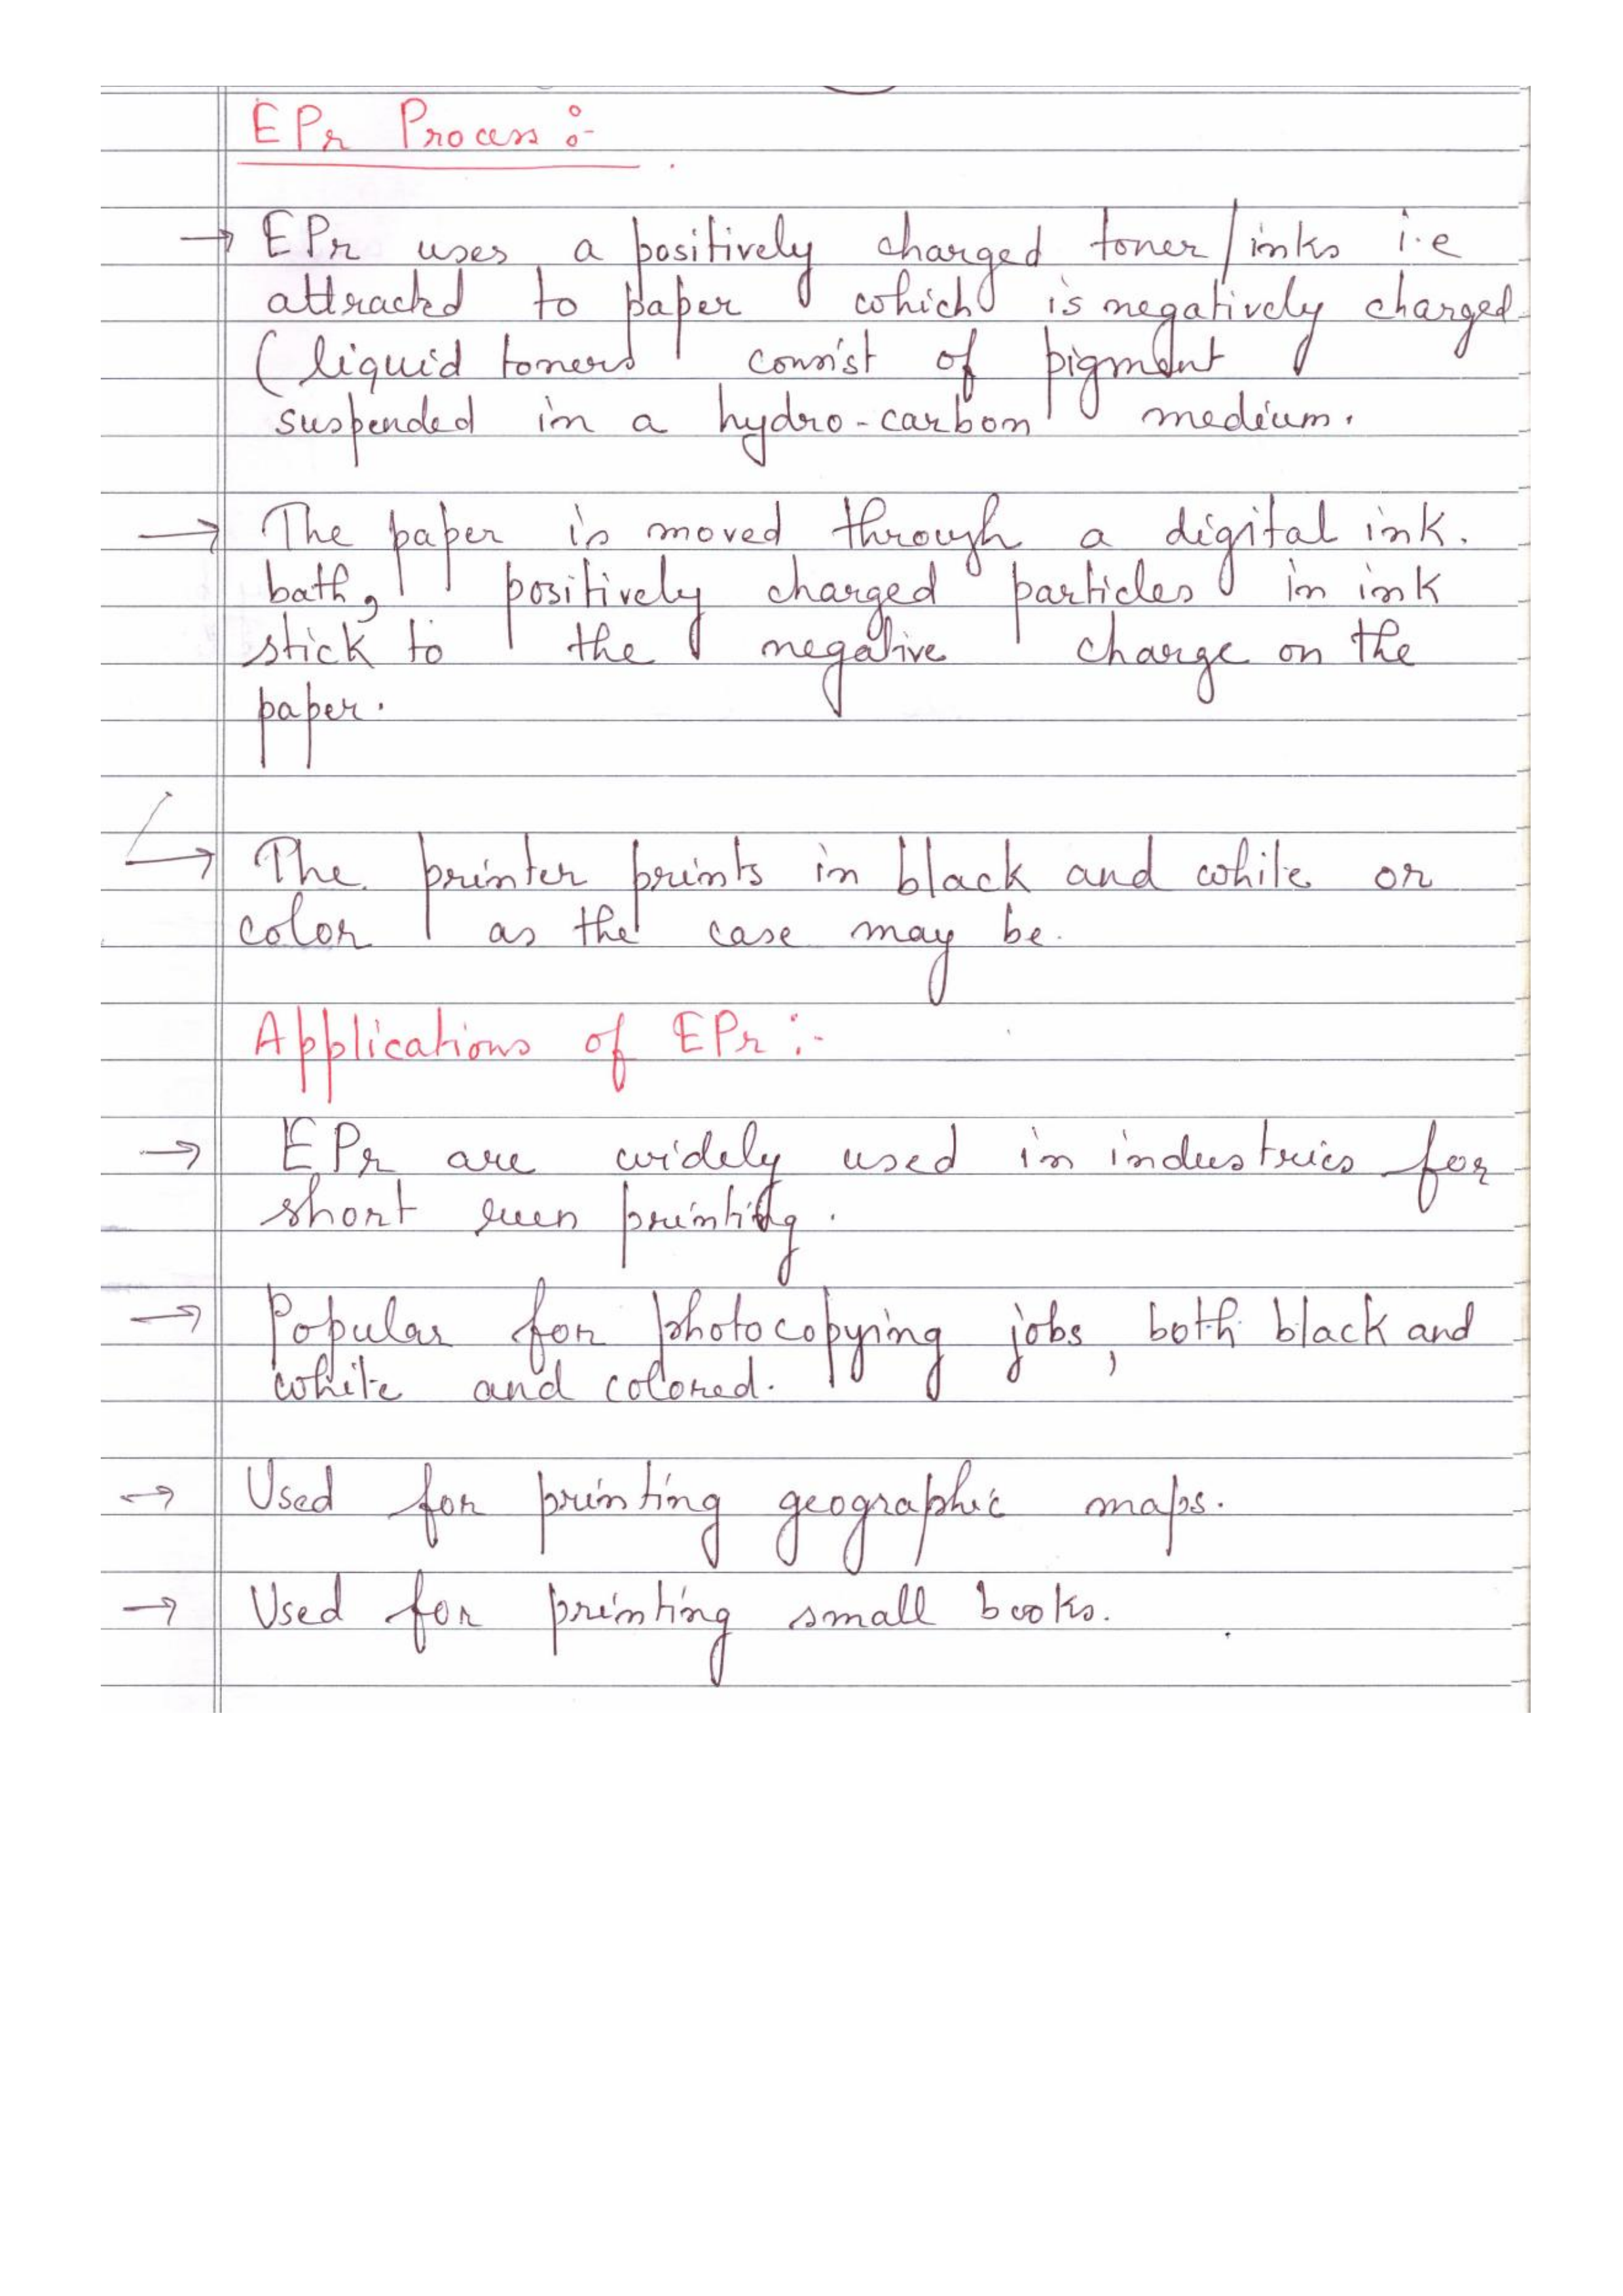 EPr Process :-
→ EPr uses a positively charged toner/inks i.e
attracted to paper which is negatively charged
(liquid toners consist of pigment
suspended in a hydro-carbon medium.
→ The paper is moved through a digital ink.
bath, positively charged particles in ink
stick to the negative charge on the
paper.
→ The printer prints in black and white or
color as the case may be.
Applications of EPr :-
→ EPr are widely used in industries for
short run printing.
→ Popular for photocopying jobs, both black and
white and colored.
→ Used for printing geographic maps.
→ Used for printing small books.